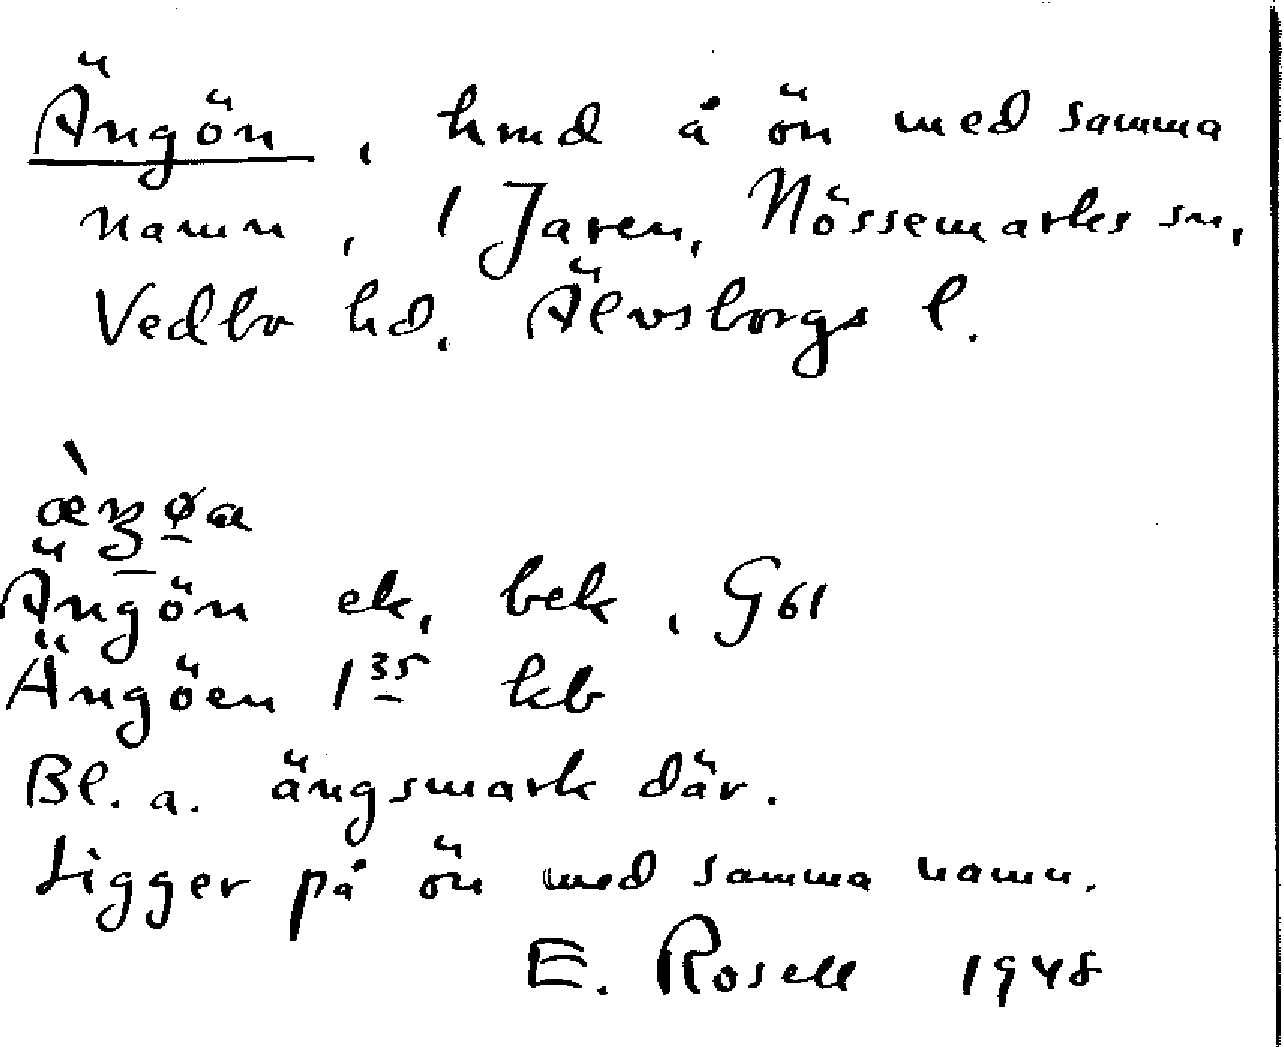 Ängön, hmd å ön med samma
namn, i Jaren, Nössemarks sn,
Vedbo hd, Älvsborgs l.
Ängön ek, bek, G61
Ängöen 1 35 kb
Bl. a. ängsmark där.
Ligger på ön med samma namn.
E. Rosell 1948